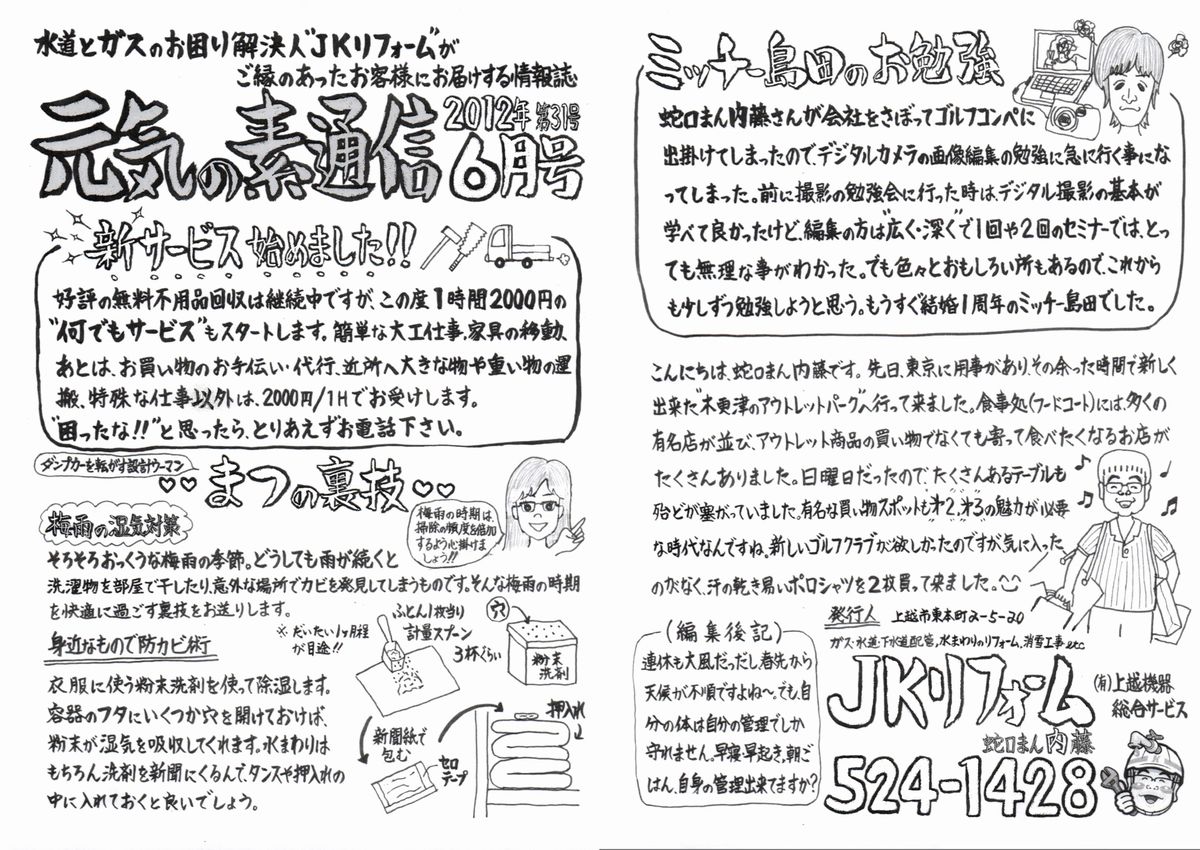 水道とガスのお困り解決人"JKリフォーム"が
ご縁のあったお客様にお届けする情報誌
元気の素通信
2012年 第31号
6月号
新サービス 始めました!!
好評の無料不用品回収は継続中ですが、この度1時間2000円の
"何でもサービス"もスタートします。簡単な大工仕事、家具の移動、
あとは、お買い物のお手伝い・代行、近所へ大きな物や重い物の運
搬、特殊な仕事以外は、2000円/1Hでお受けします。
"困ったな!!"と思ったら、とりあえずお電話下さい。
ダンプカーを転がす設計ウーマン
♡♡まつの裏技♡♡
梅雨の湿気対策
梅雨の時期は、
掃除の頻度を倍加
するよう心掛けま
しょう!!
そろそろおっくうな梅雨の季節。どうしても雨が続くと
洗濯物を部屋で干したり、意外な場所でカビを発見してしまうものです。そんな梅雨の時期
を快適に過ごす裏技をお送りします。
身近なもので防カビ術
※だいたい1ヶ月程
が目途!!
衣服に使う粉末洗剤を使って除湿します。
容器のフタにいくつか穴を開けておけば、
粉末が湿気を吸収してくれます。水まわりは
もちろん洗剤を新聞にくるんで、タンスや押入れの
中に入れておくと良いでしょう。
ふとん1枚当り
計量スプーン
3杯ぐらい
穴
粉末
洗剤
新聞紙で
包む
セロ
テープ
押入れ
ミッチー島田のお勉強
蛇口まん内藤さんが会社をさぼってゴルフコンペに
出掛けてしまったので、デジタルカメラの画像編集の勉強に急に行く事にな
ってしまった。前に撮影の勉強会に行った時は、デジタル撮影の基本が
学べて良かったけど、編集の方は"広く・深く"で1回や2回のセミナーでは、とっ
ても無理な事がわかった。でも色々とおもしろい所もあるので、これから
も少しずつ勉強しようと思う。もうすぐ結婚1周年のミッチー島田でした。
こんにちは、蛇口まん内藤です。先日、東京に用事があり、その余った時間で新しく
出来た"木更津のアウトレットパーク"へ行って来ました。食事処(フードコート)には、多くの
有名店が並び、アウトレット商品の買い物でなくても寄って食べたくなるお店が
たくさんありました。日曜日だったので、たくさんあるテーブルも
殆どが塞がっていました。有名な買い物スポットも"才2、才3"の魅力が必要
な時代なんですね。新しいゴルフクラブが欲しかったのですが気に入った
のがなく、汗の乾き易いポロシャツを2枚買って来ました。
(編集後記)
連休も大風だっだし、春先から
天候が不順ですよね〜。でも自
分の体は自分の管理でしか
守れません。早寝早起き、朝ご
はん、自身の管理出来てますか?
発行人 上越市東本町2-5-20
ガス・水道・下水道配管,水まわりのリフォーム,消雪工事etc
JKリフォーム
(有)上越機器
総合サービス
蛇口まん内藤
524-1428